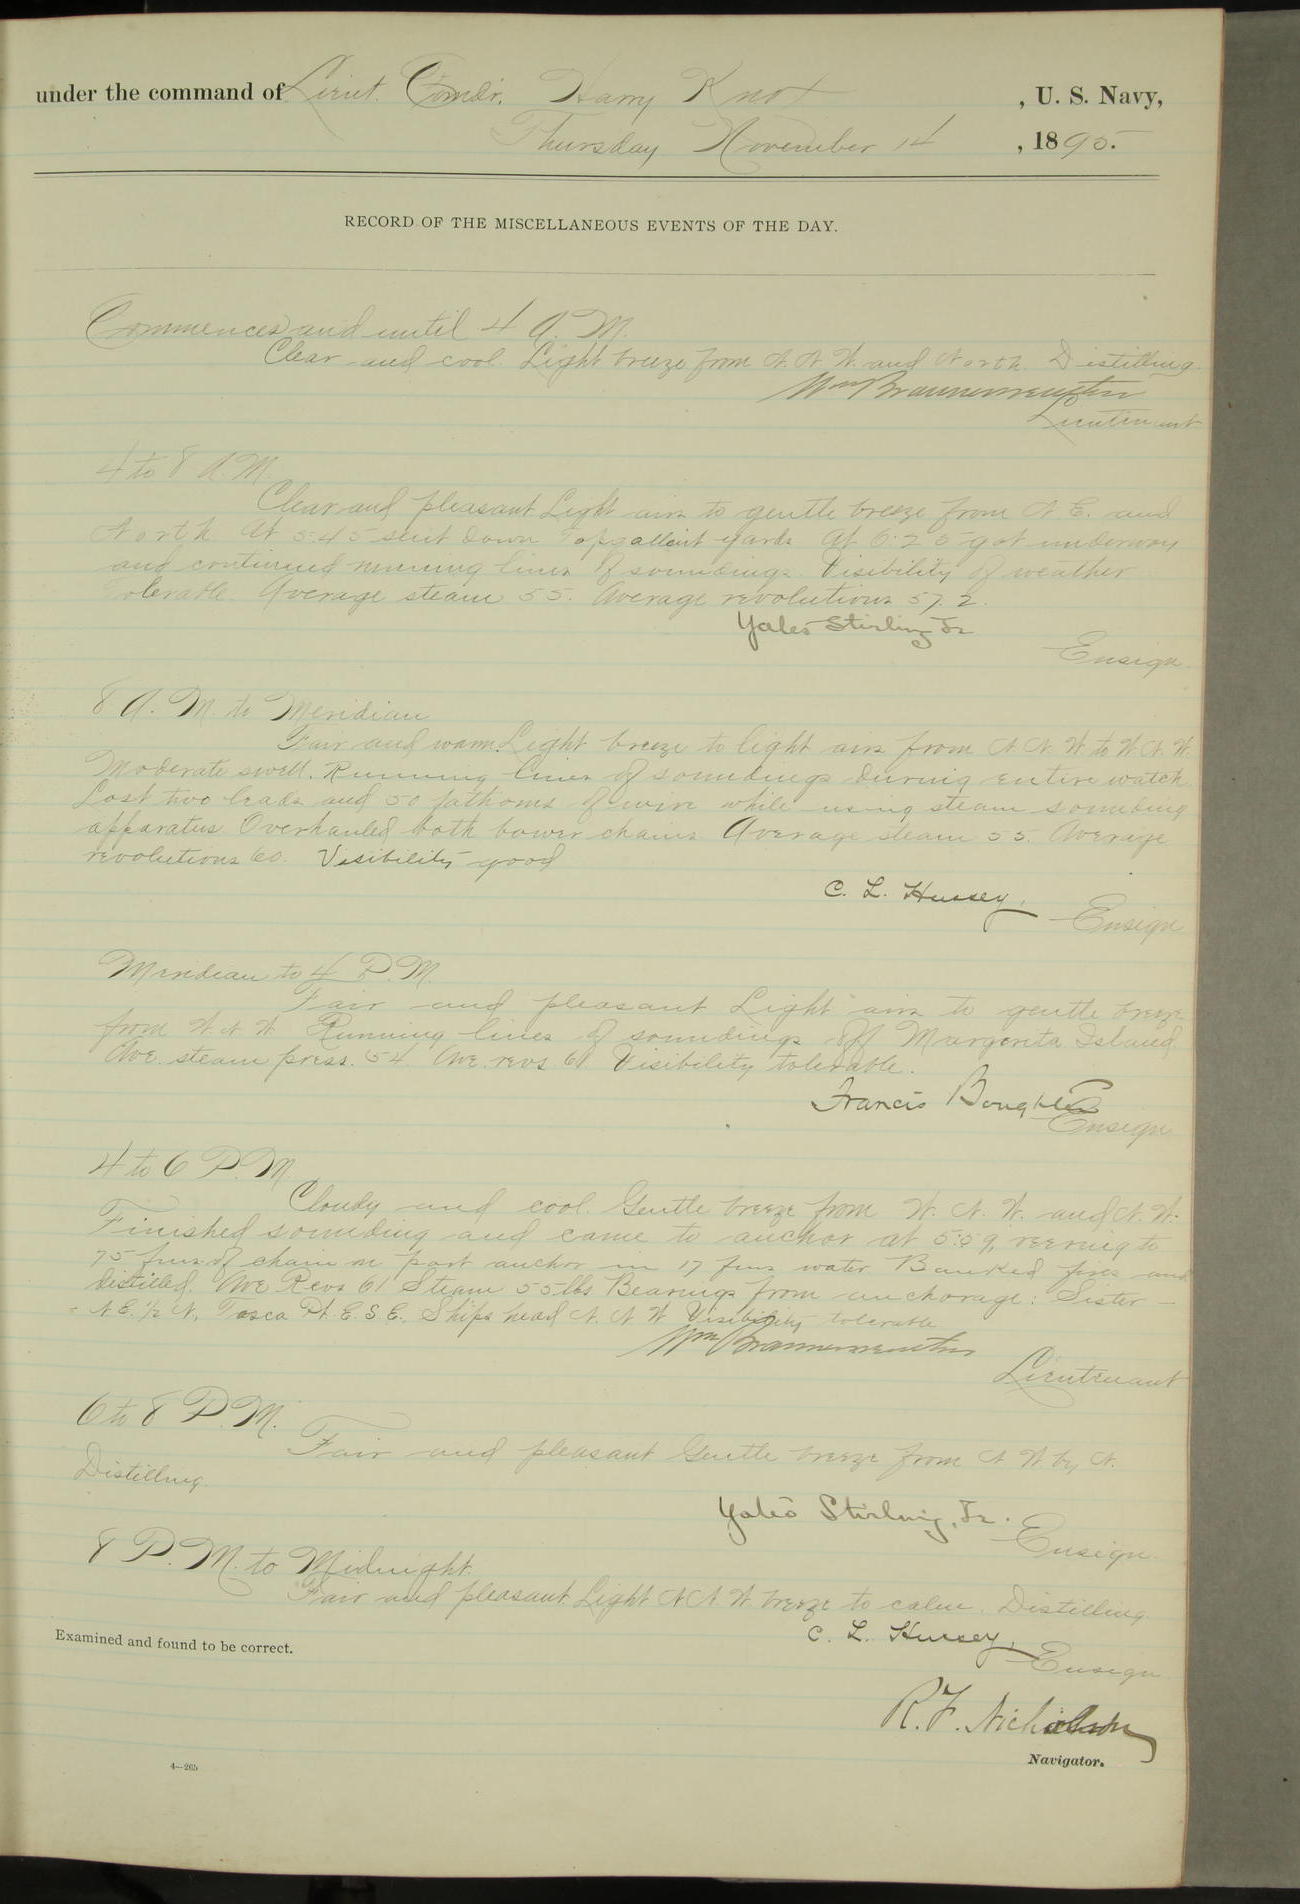 under the command of Lieut. Comdr. Harry Knox, U. S. Navy,
Thursday November 14, 1895.
RECORD OF THE MISCELLANEOUS EVENTS OF THE DAY.
Commences and until 4 A. M.
Clear and cool. Light breeze from N. N. W. and North. Distilling.
Wm Braunersreuther
Lieutenant
4 to 8 A. M.
Clear and pleasant Light airs to gentle breeze from N. E. and
North At 5:45 sent down Topgallant yards At 6:25 got underway
and continued running lines of soundings. Visibility of weather
Tolerable. Average steam 55. Average revolutions 57.2.
Yates Stirling Jr
Ensign
8 A. M. to Meridian
Fair and warm. Light breeze to light airs from N. N. W. to W. N. W.
Moderate swell. Running lines of soundings during entire watch
Lost two leads and 50 fathoms of wire while using steam sounding
apparatus. Overhauled both bower chains. Average steam 55. Average
revolutions 60. Visibility good
C. L. Hussey,
Ensign
Meridian to 4 P. M.
Fair and pleasant Light airs to gentle breeze
from W. N. W. Running lines of soundings off Margarita Island
Ave. steam press. 54. Ave. revs. 61 Visibility tolerable.
Francis Boughter
Ensign
4 to 6 P. M
Cloudy and cool. Gentle breeze from W. N. W. and N. W.
Finished sounding and came to anchor at 5:59, veering to
75 fms of chain on port anchor in 17 fms water Banked fires and
distilled. Ave Revs 61 Steam 55 lbs Bearings from anchorage: Sister
N. E. ½ N., Tosca Pt. E. S. E. Ships head N. N. W Visibility tolerable
Wm Braunersreuther
Lieutenant
6 to 8 P. M.
Fair and pleasant Gentle breeze from N W by N.
Distilling.
Yates Stirling, Jr.
Ensign
8 P. M. to Midnight.
Fair and pleasant. Light N N. W breeze to calm. Distilling.
C. L. Hussey,
Ensign
Examined and found to be correct.
R. F. Nicholson
Navigator.
4—265